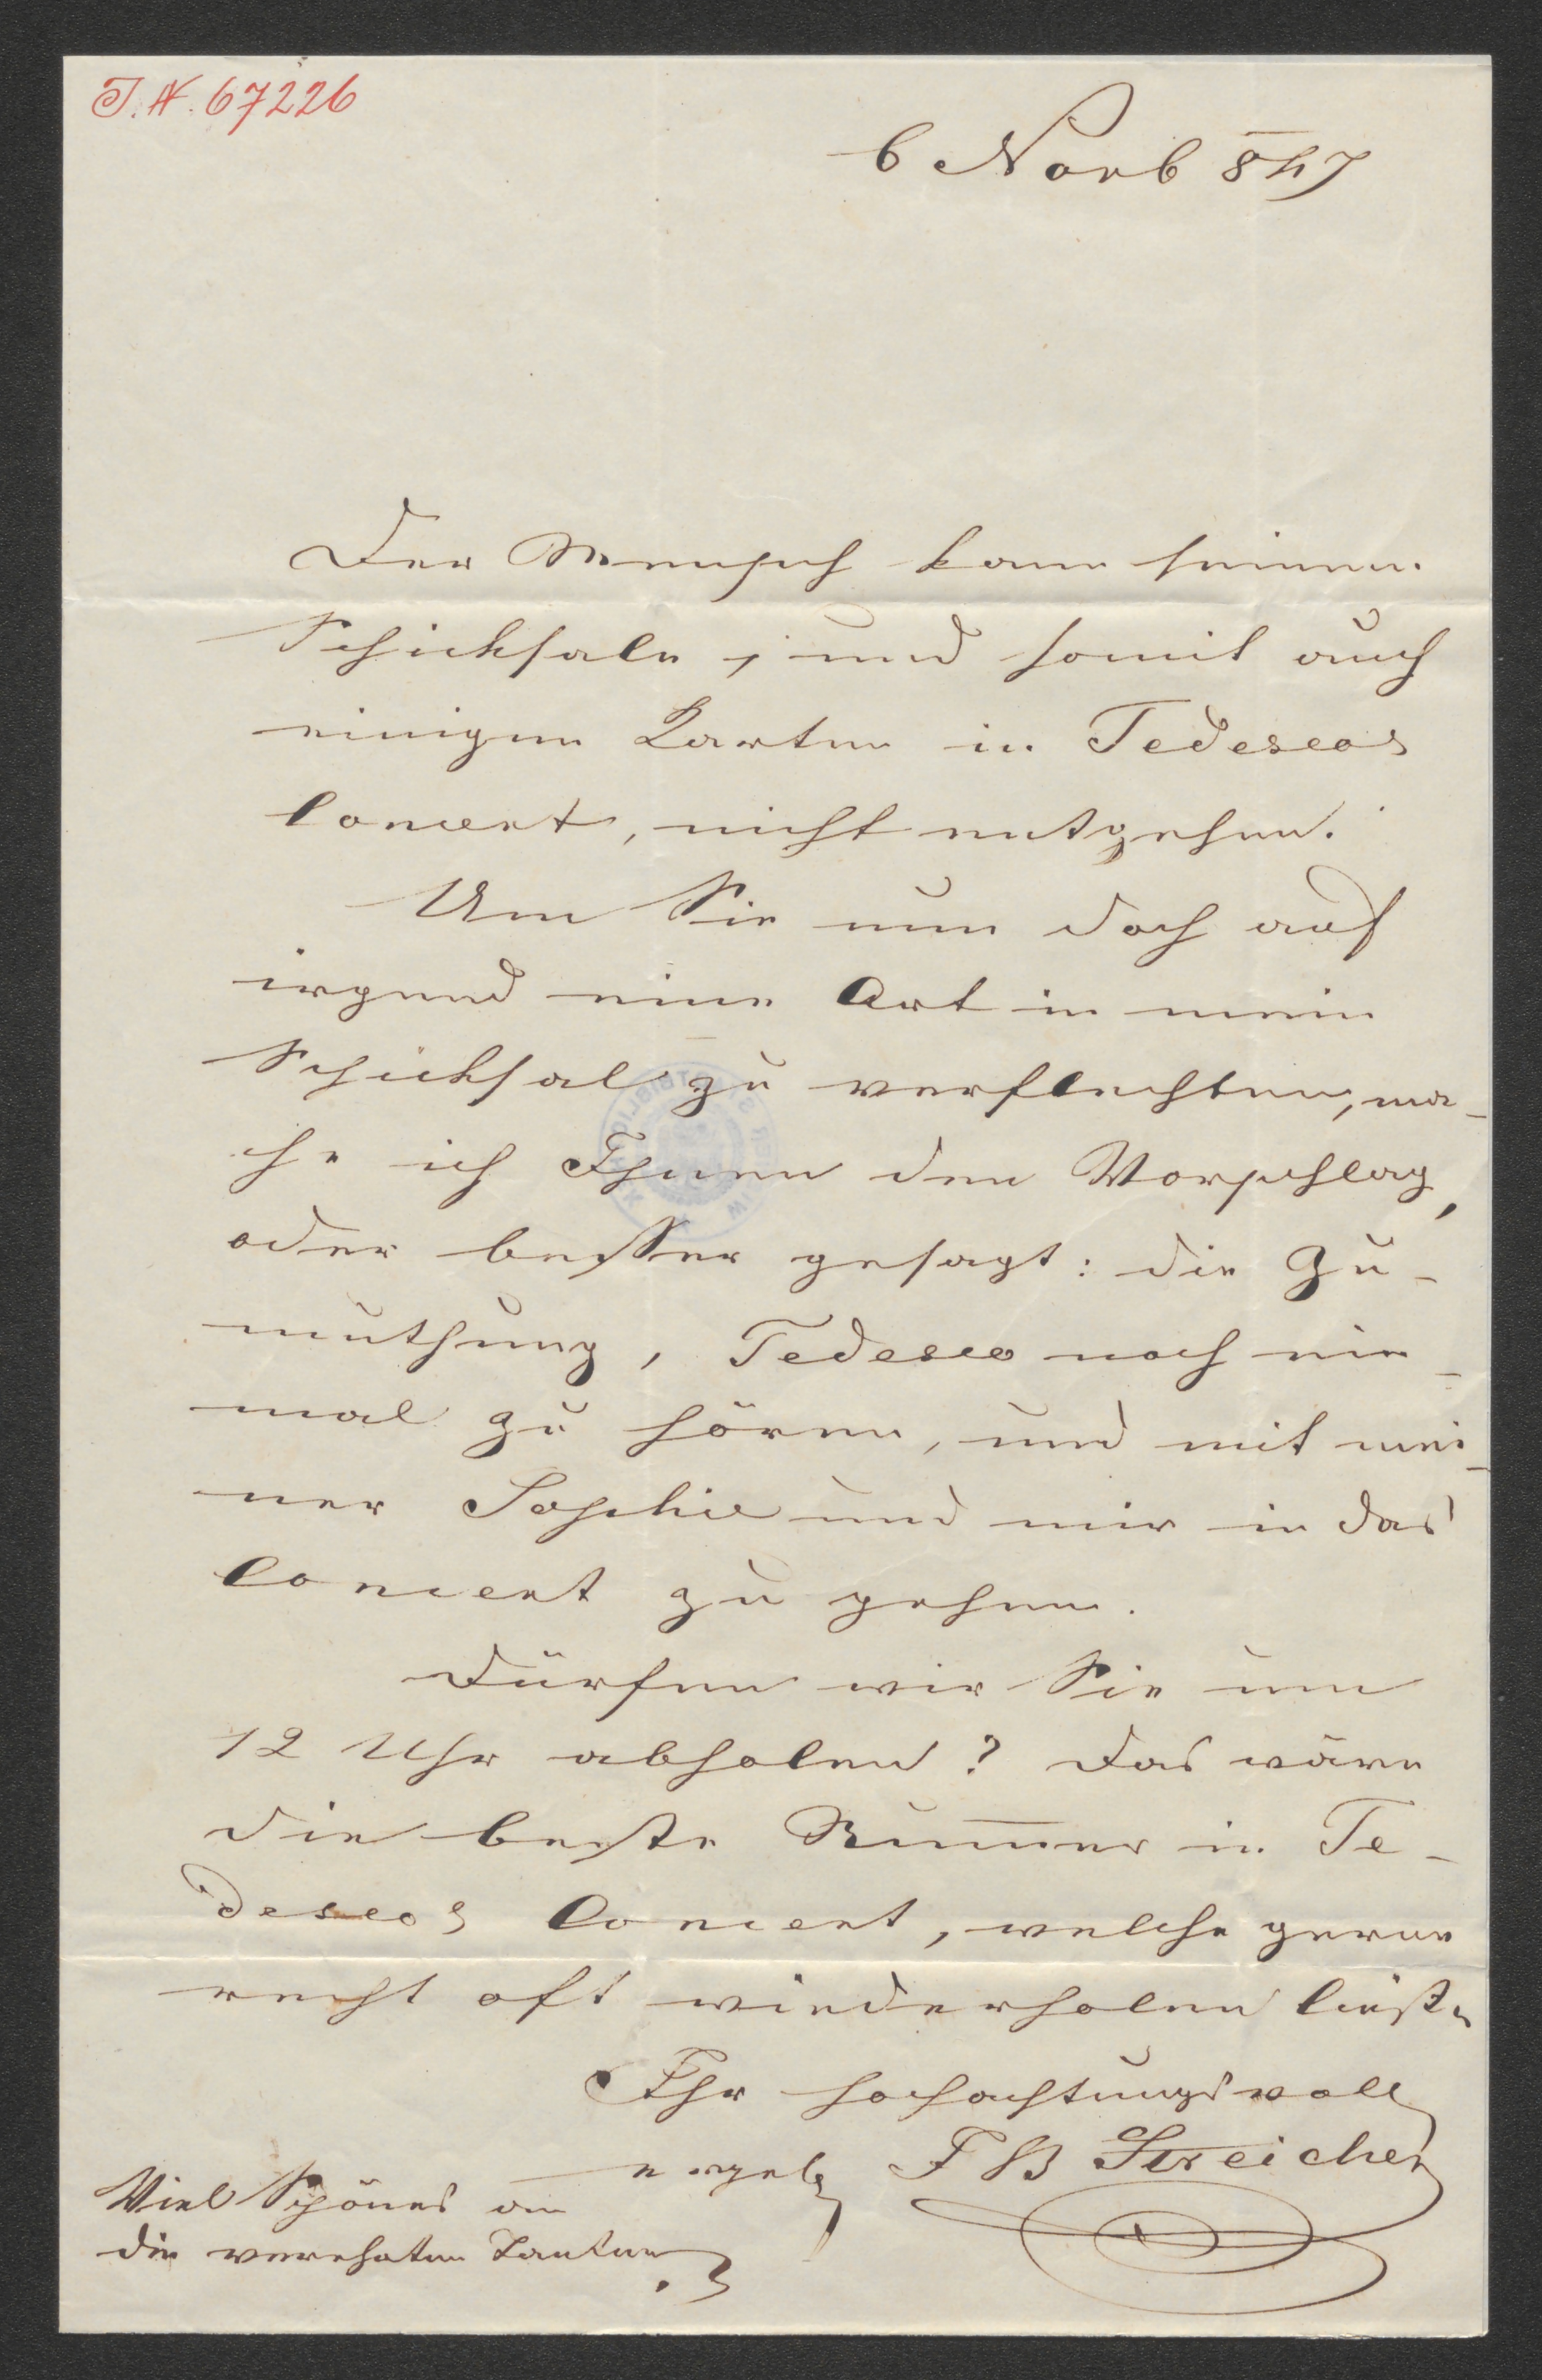 J. N. 67226
6 Novb 847
Der Mensch kann seinem
Schicksale, und somit auch
einigen Karten in Tedescos
Concert, nicht entgehen.
Um Sie nun doch auf
irgend eine Art in mein
Schicksal zu verflechten, ma-
che ich Ihnen den Vorschlag,
oder besser gesagt: die Zu-
muthung, Tedesco noch ein-
mal zu hören, und mit mei-
ner Sophie und mir in das
Concert zu gehen.
Dürfen wir Sie um
12 Uhr abholen? Das wäre
die beste Num̅er in Te-
descos Concert, welche gerne
recht oft wiederholen ließe
Ihr hochachtungsvoll
ergebʒ J B Streicher
Viel Schönes an
die verehrten Tanten.